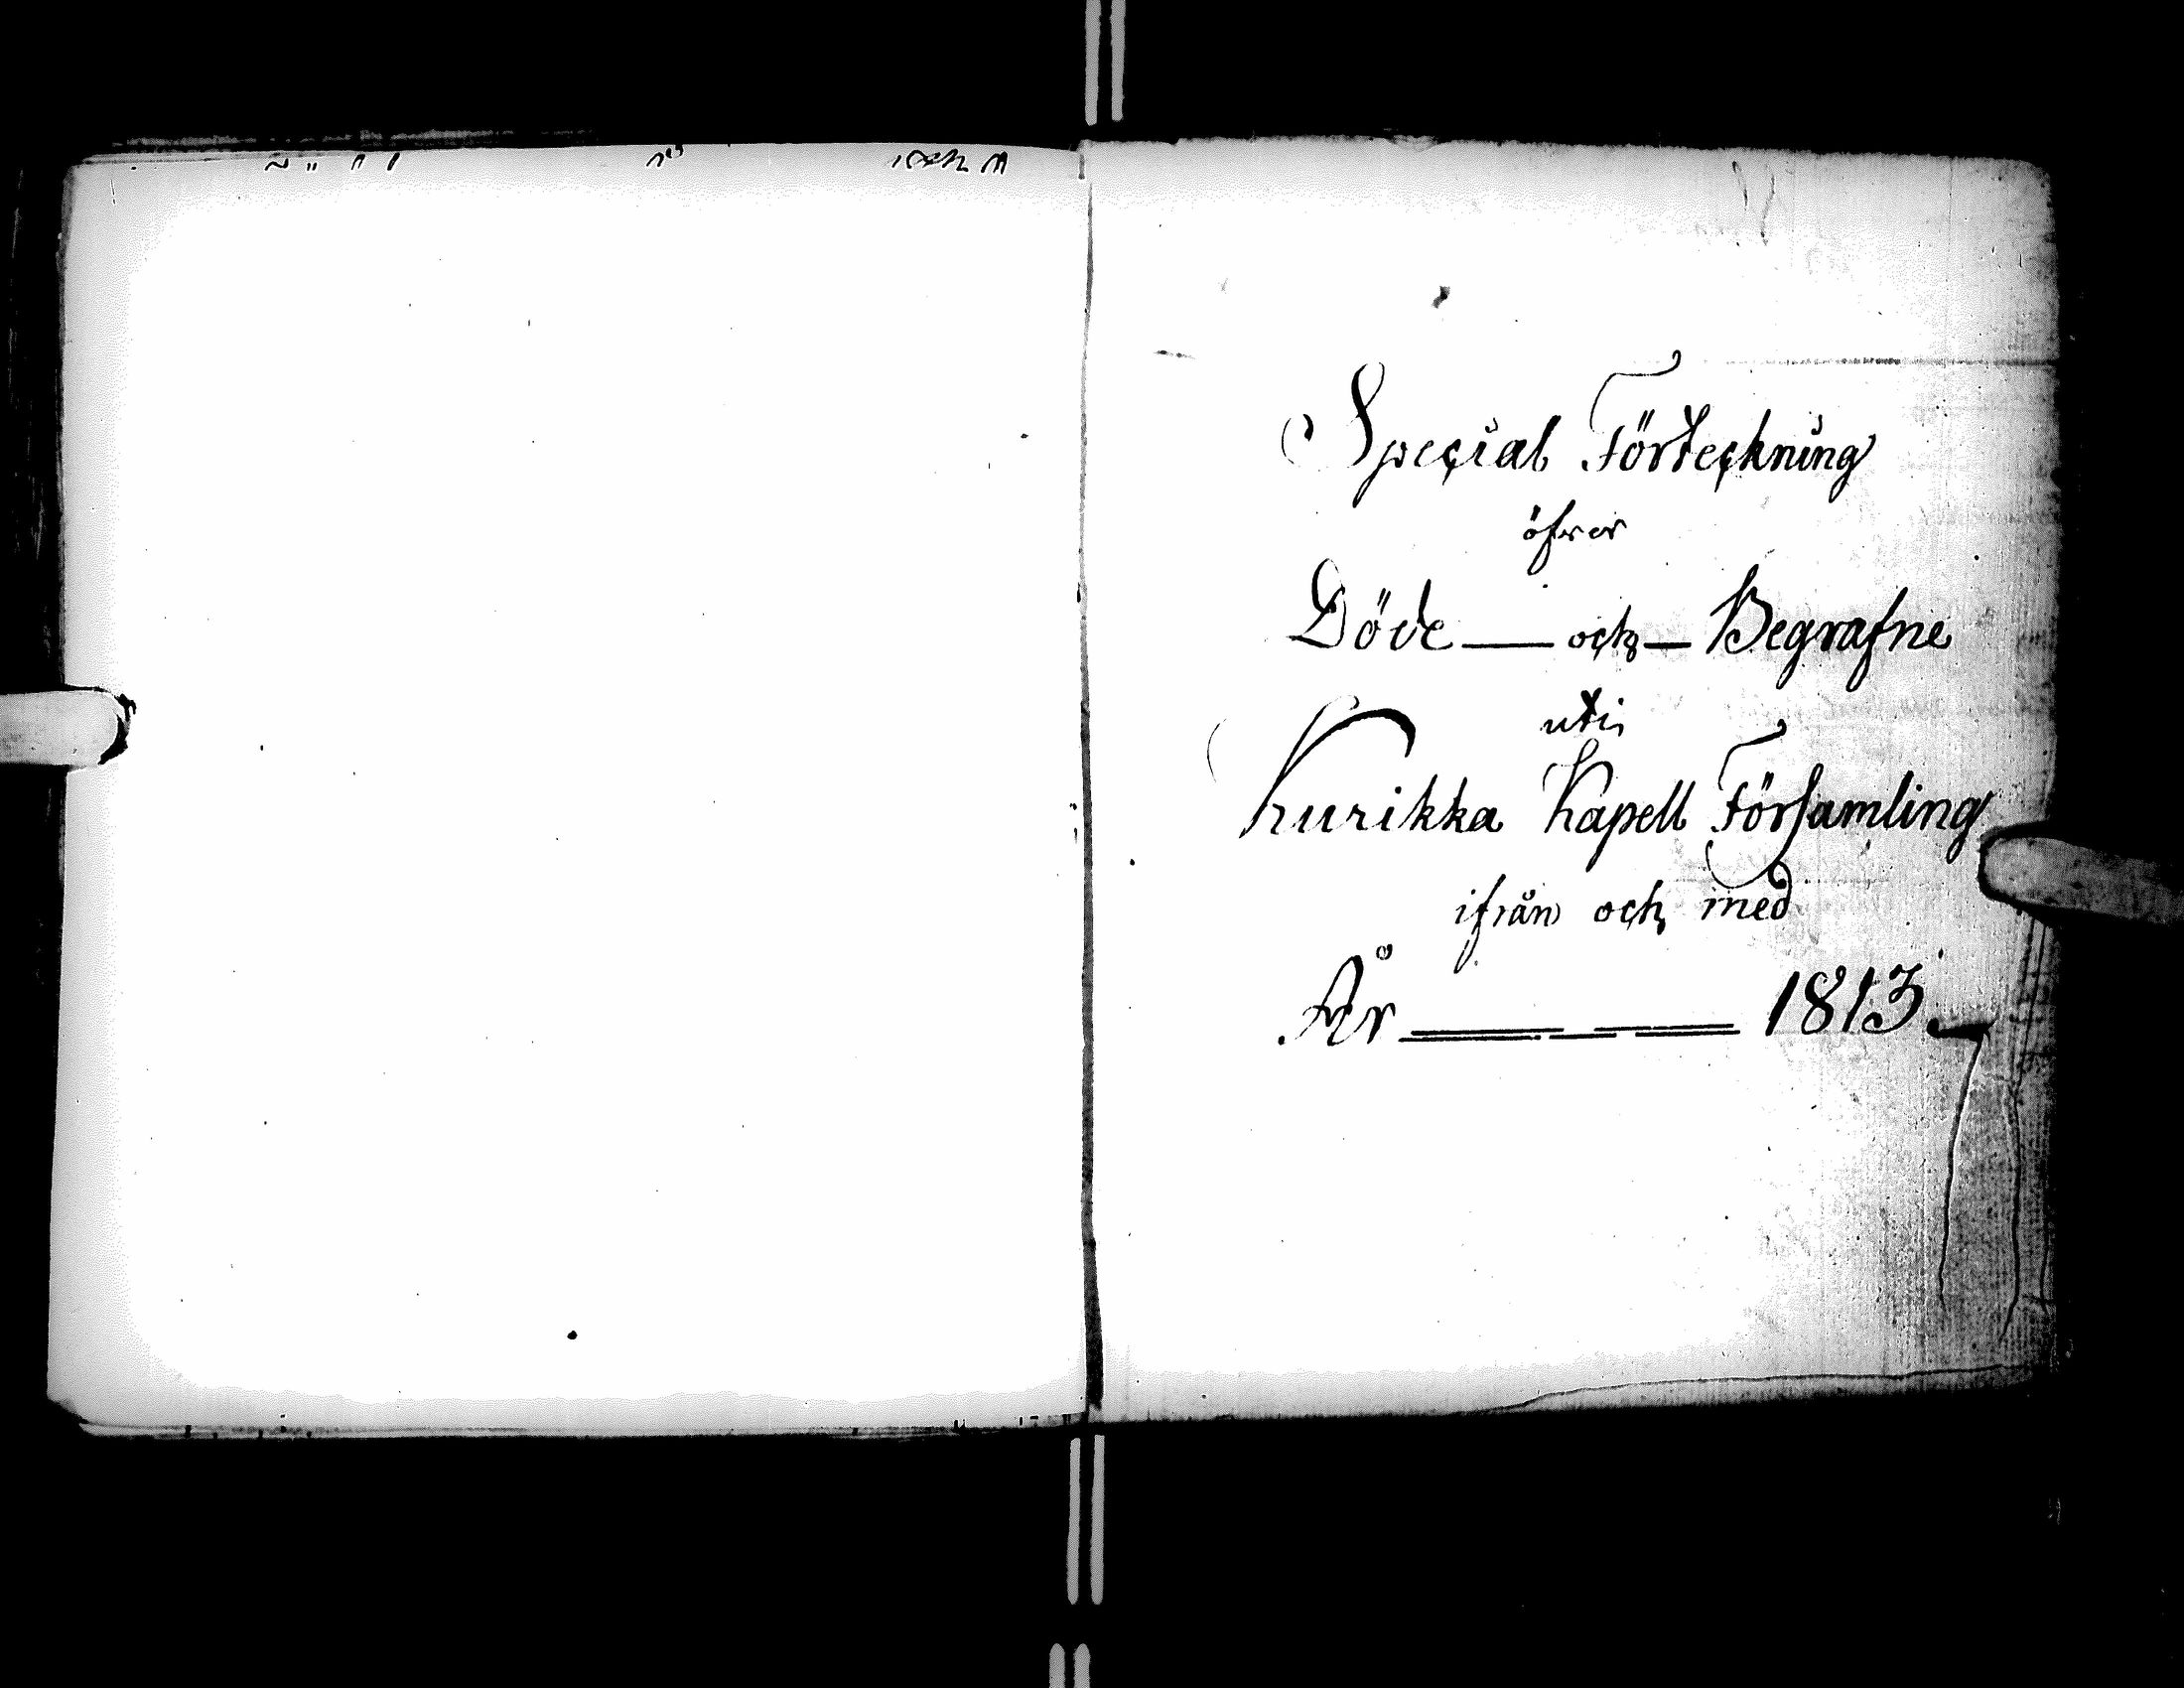 Special Förteckning
öfver
Döde — och — Begrafne
uti
Kurikka Kapell Församling
ifrån och med
År 1813.